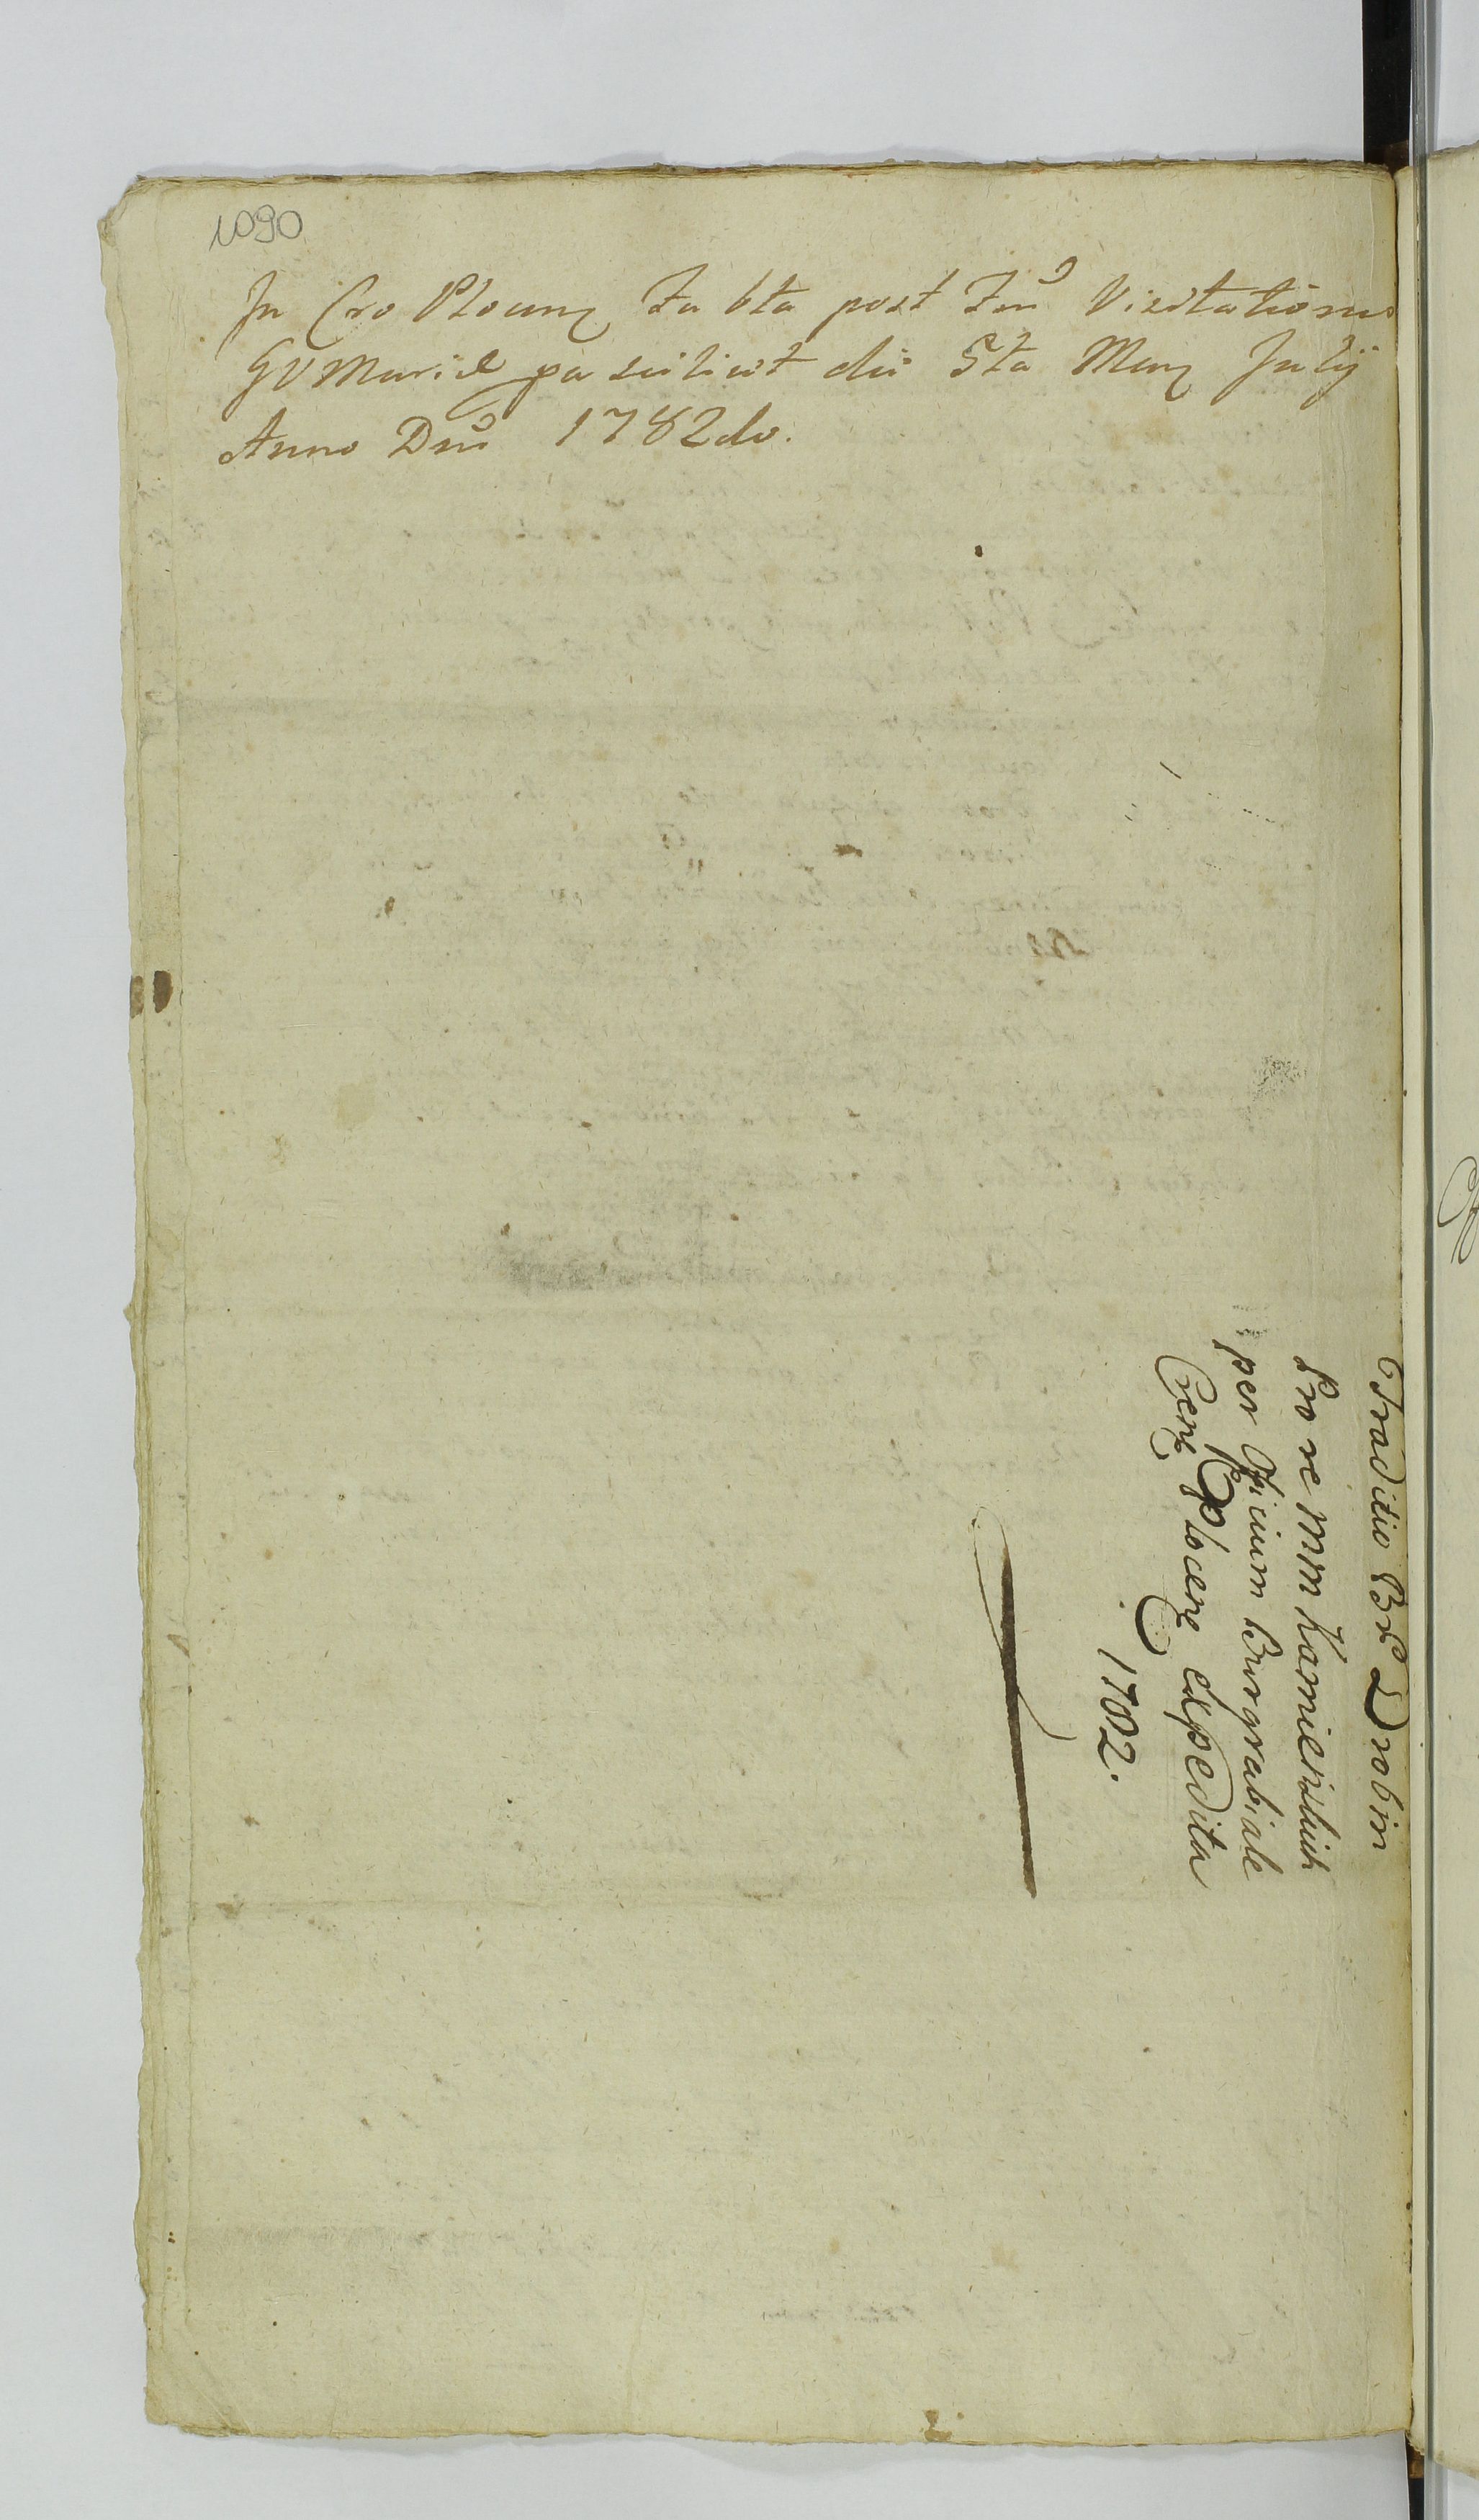 1090
In Cro Plocenz Fa 6ta post Fm Visitationis
BVMariæ scilicet die 5ta Menz Julij
Anno Dni 1782do.
Traditio Br Drobin
Pro re MM Kamienskich
per Officium Burgrabiale
Crenz Plocenz expedita
1782.